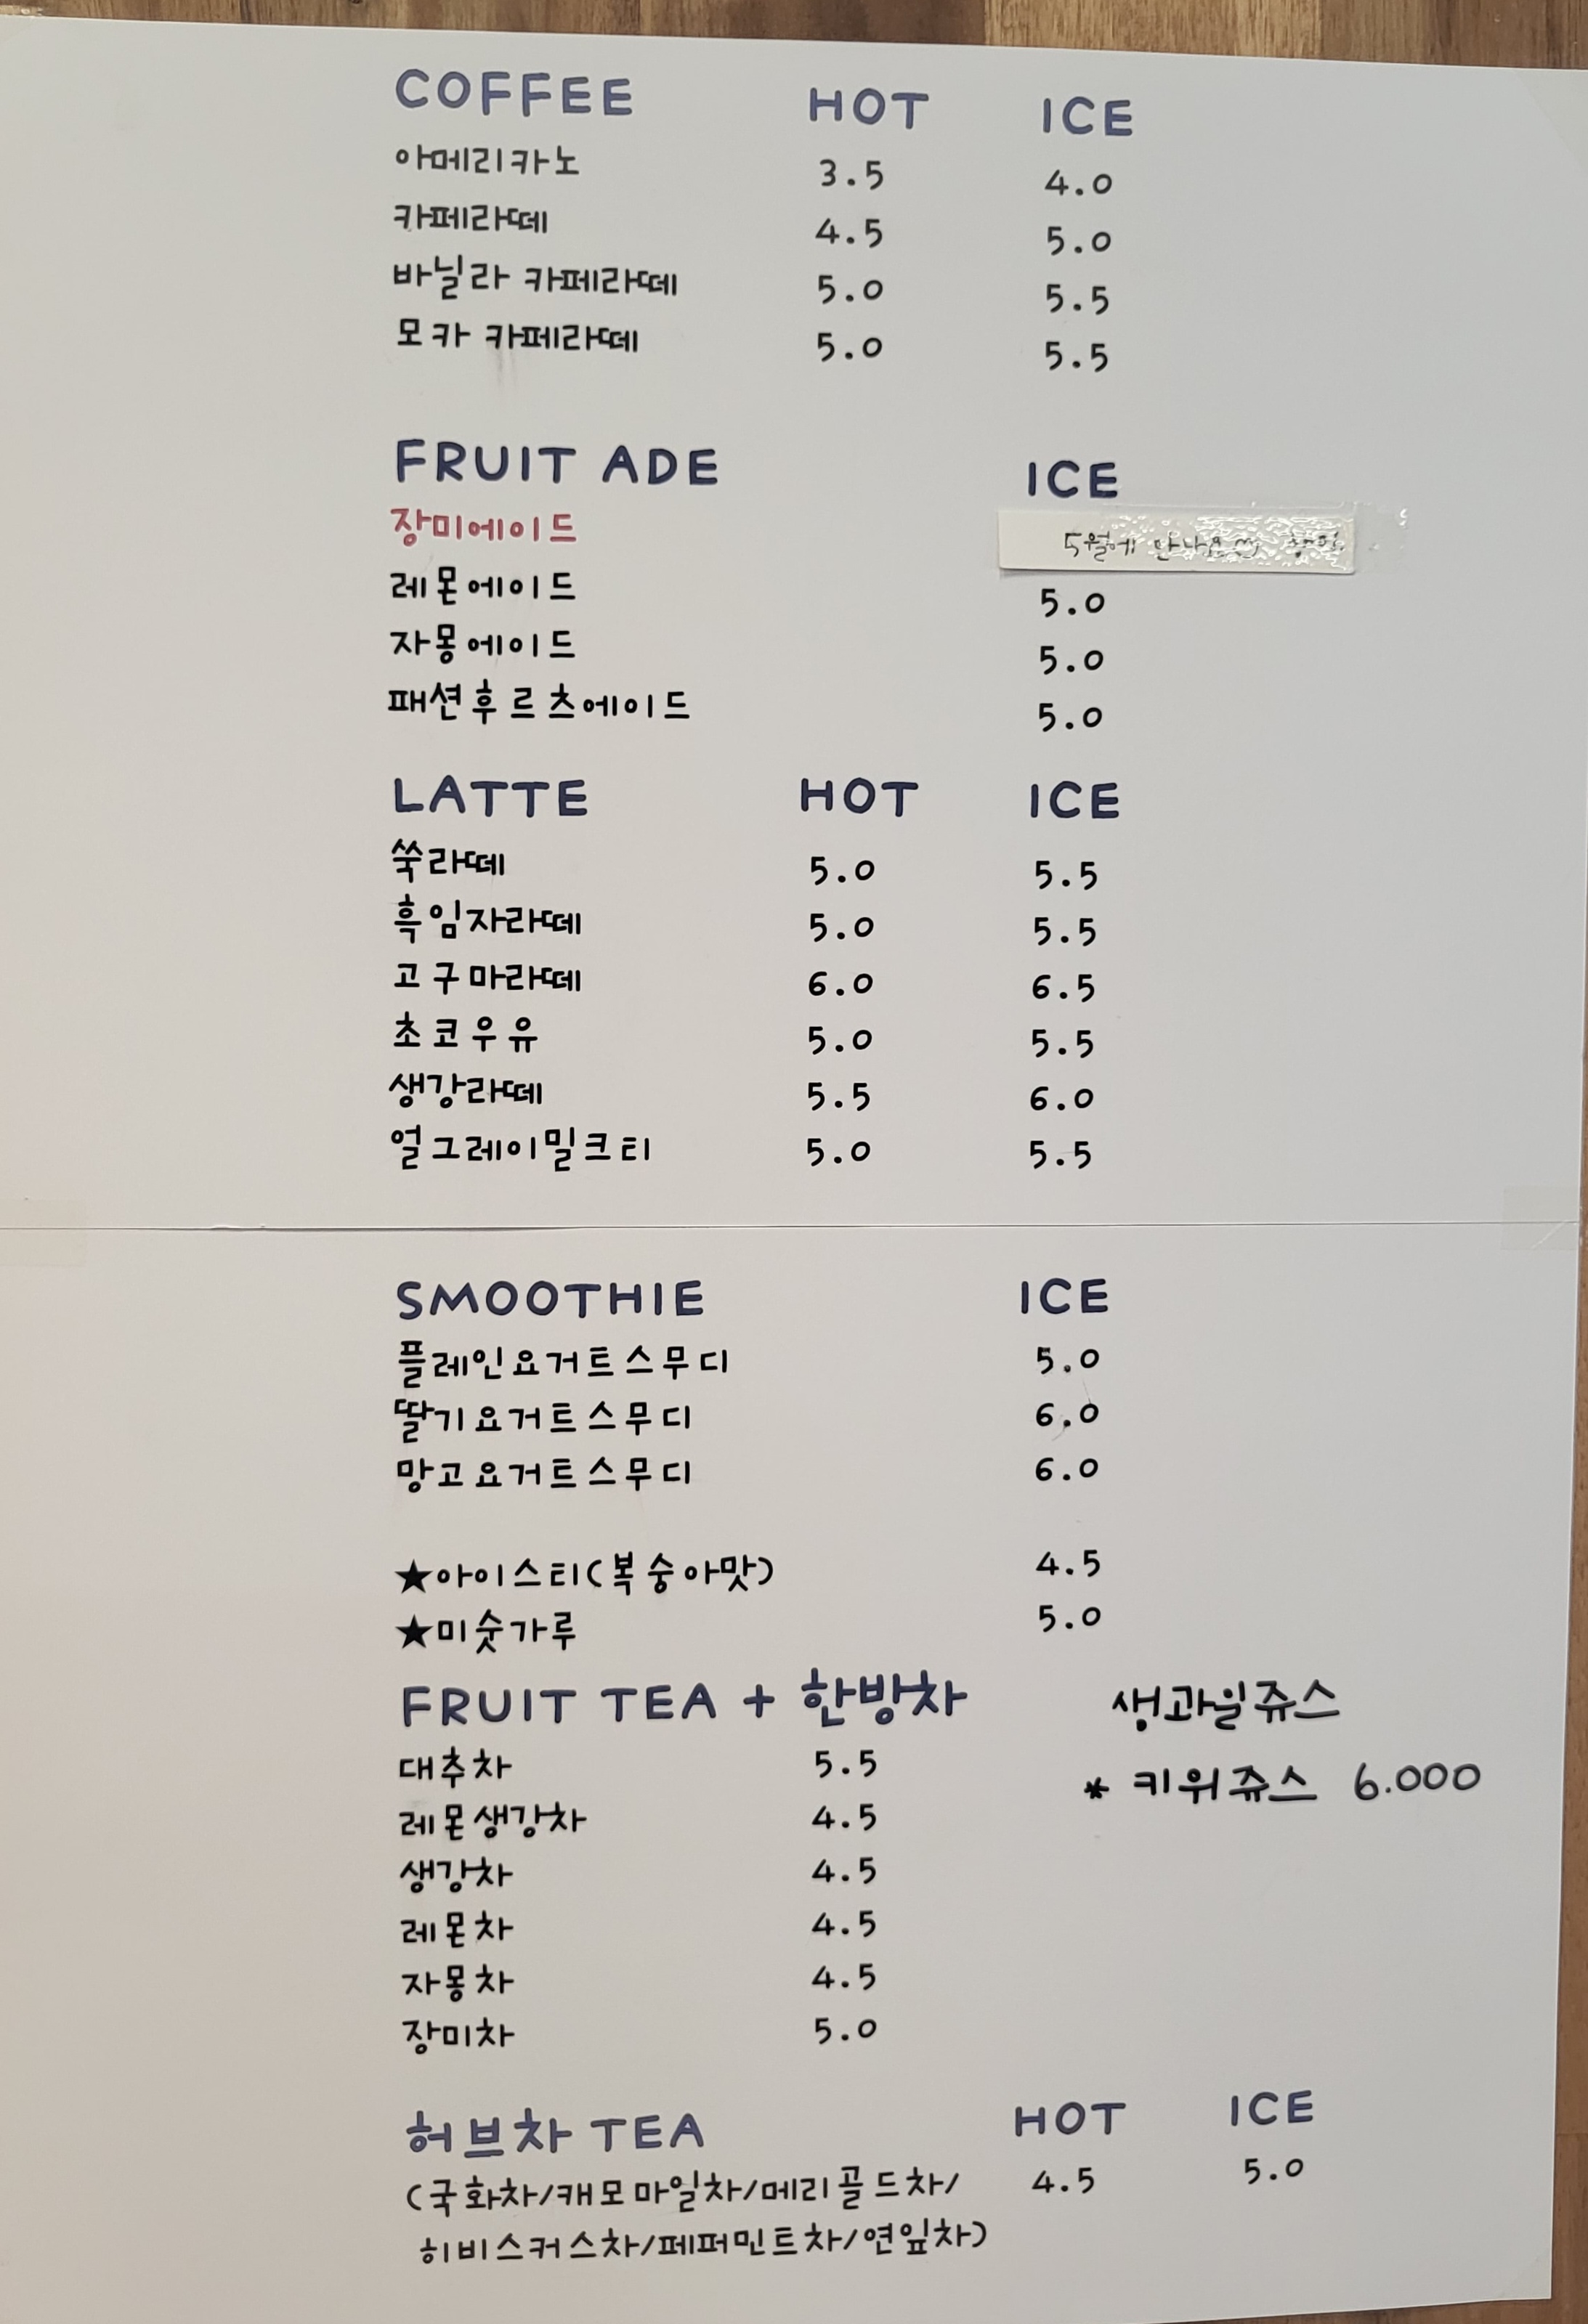 COFFEE HOT ICE
아메리카노 3.5 4.0
카페라떼 4.5 5.0
바닐라 카페라떼 5.0 5.5
모카 카페라떼 5.0 5.5
FRUIT ADE ICE
장미에이드 5월에 만나요
레몬에이드 5.0
자몽에이드 5.0
패션후르츠에이드 5.0
LATTE HOT ICE
쑥라떼 5.0 5.5
흑임자라떼 5.0 5.5
고구마라떼 6.0 6.5
초코우유 5.0 5.5
생강라떼 5.5 6.0
얼그레이밀크티 5.0 5.5
SMOOTHIE ICE
플레인요거트스무디 5.0
딸기요거트스무디 6.0
망고요거트스무디 6.0
★아이스티(복숭아맛) 4.5
★미숫가루 5.0
FRUIT TEA + 한방차
대추차 5.5
레몬생강차 4.5
생강차 4.5
레몬차 4.5
자몽차 4.5
장미차 5.0
생과일쥬스
* 키위쥬스 6.000
허브차 TEA HOT ICE
(국화차/캐모마일차/메리골드차/ 4.5 5.0
히비스커스차/페퍼민트차/연잎차)